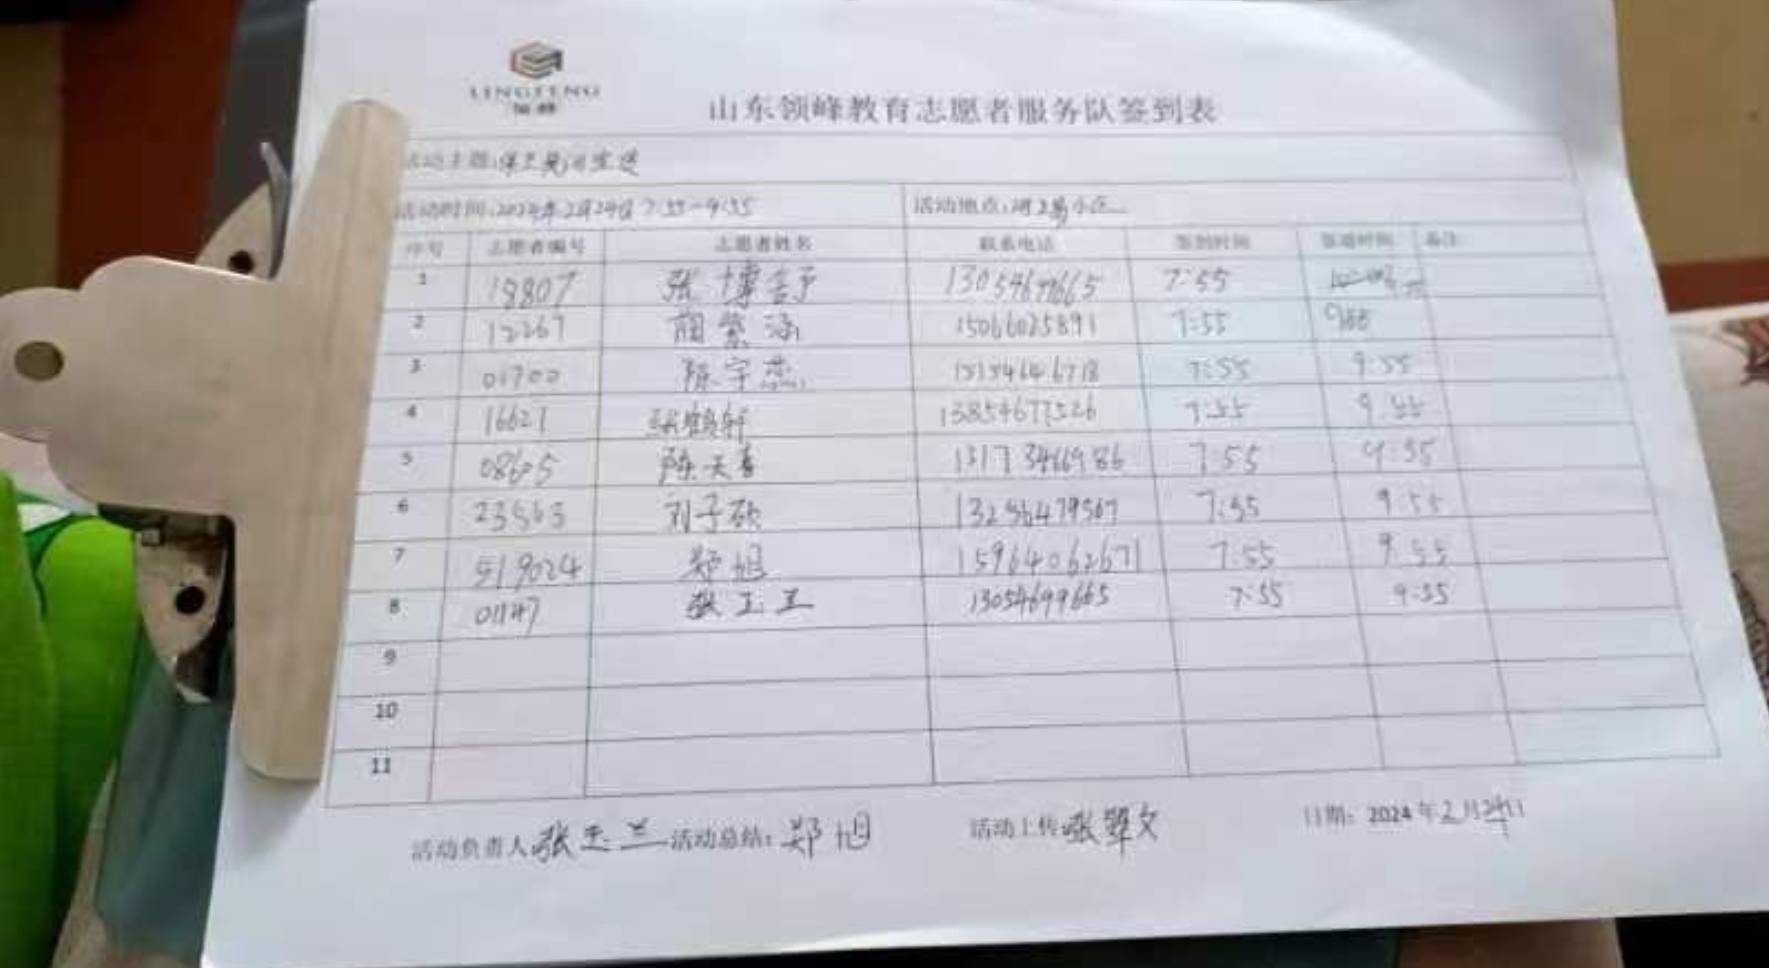 LINGFENG
领峰
山东领峰教育志愿者服务队签到表
活动主题:
活动时间:2024年2月24日 7:55-9:55 活动地点:
序号 志愿者编号 志愿者姓名 联系电话 签到时间 签退时间 备注
1 18807 张博 7:55
2 12267 涵 15066025891 7:55 9:55
3 01700 陈宇杰 15154646718 7:55 9:55
4 16621 张鹤轩 13854677526 7:55 9:55
5 08605 陈天 7:55 9:55
6 23563 刘子硕 13256479507 7:55 9:55
7 519024 郑旭 15964062671 7:55 9:55
8 张玉兰 13054699665 7:55 9:55
9
10
11
活动负责人张玉兰 活动总结:郑旭 活动上传 张翠文 日期:2024年2月24日